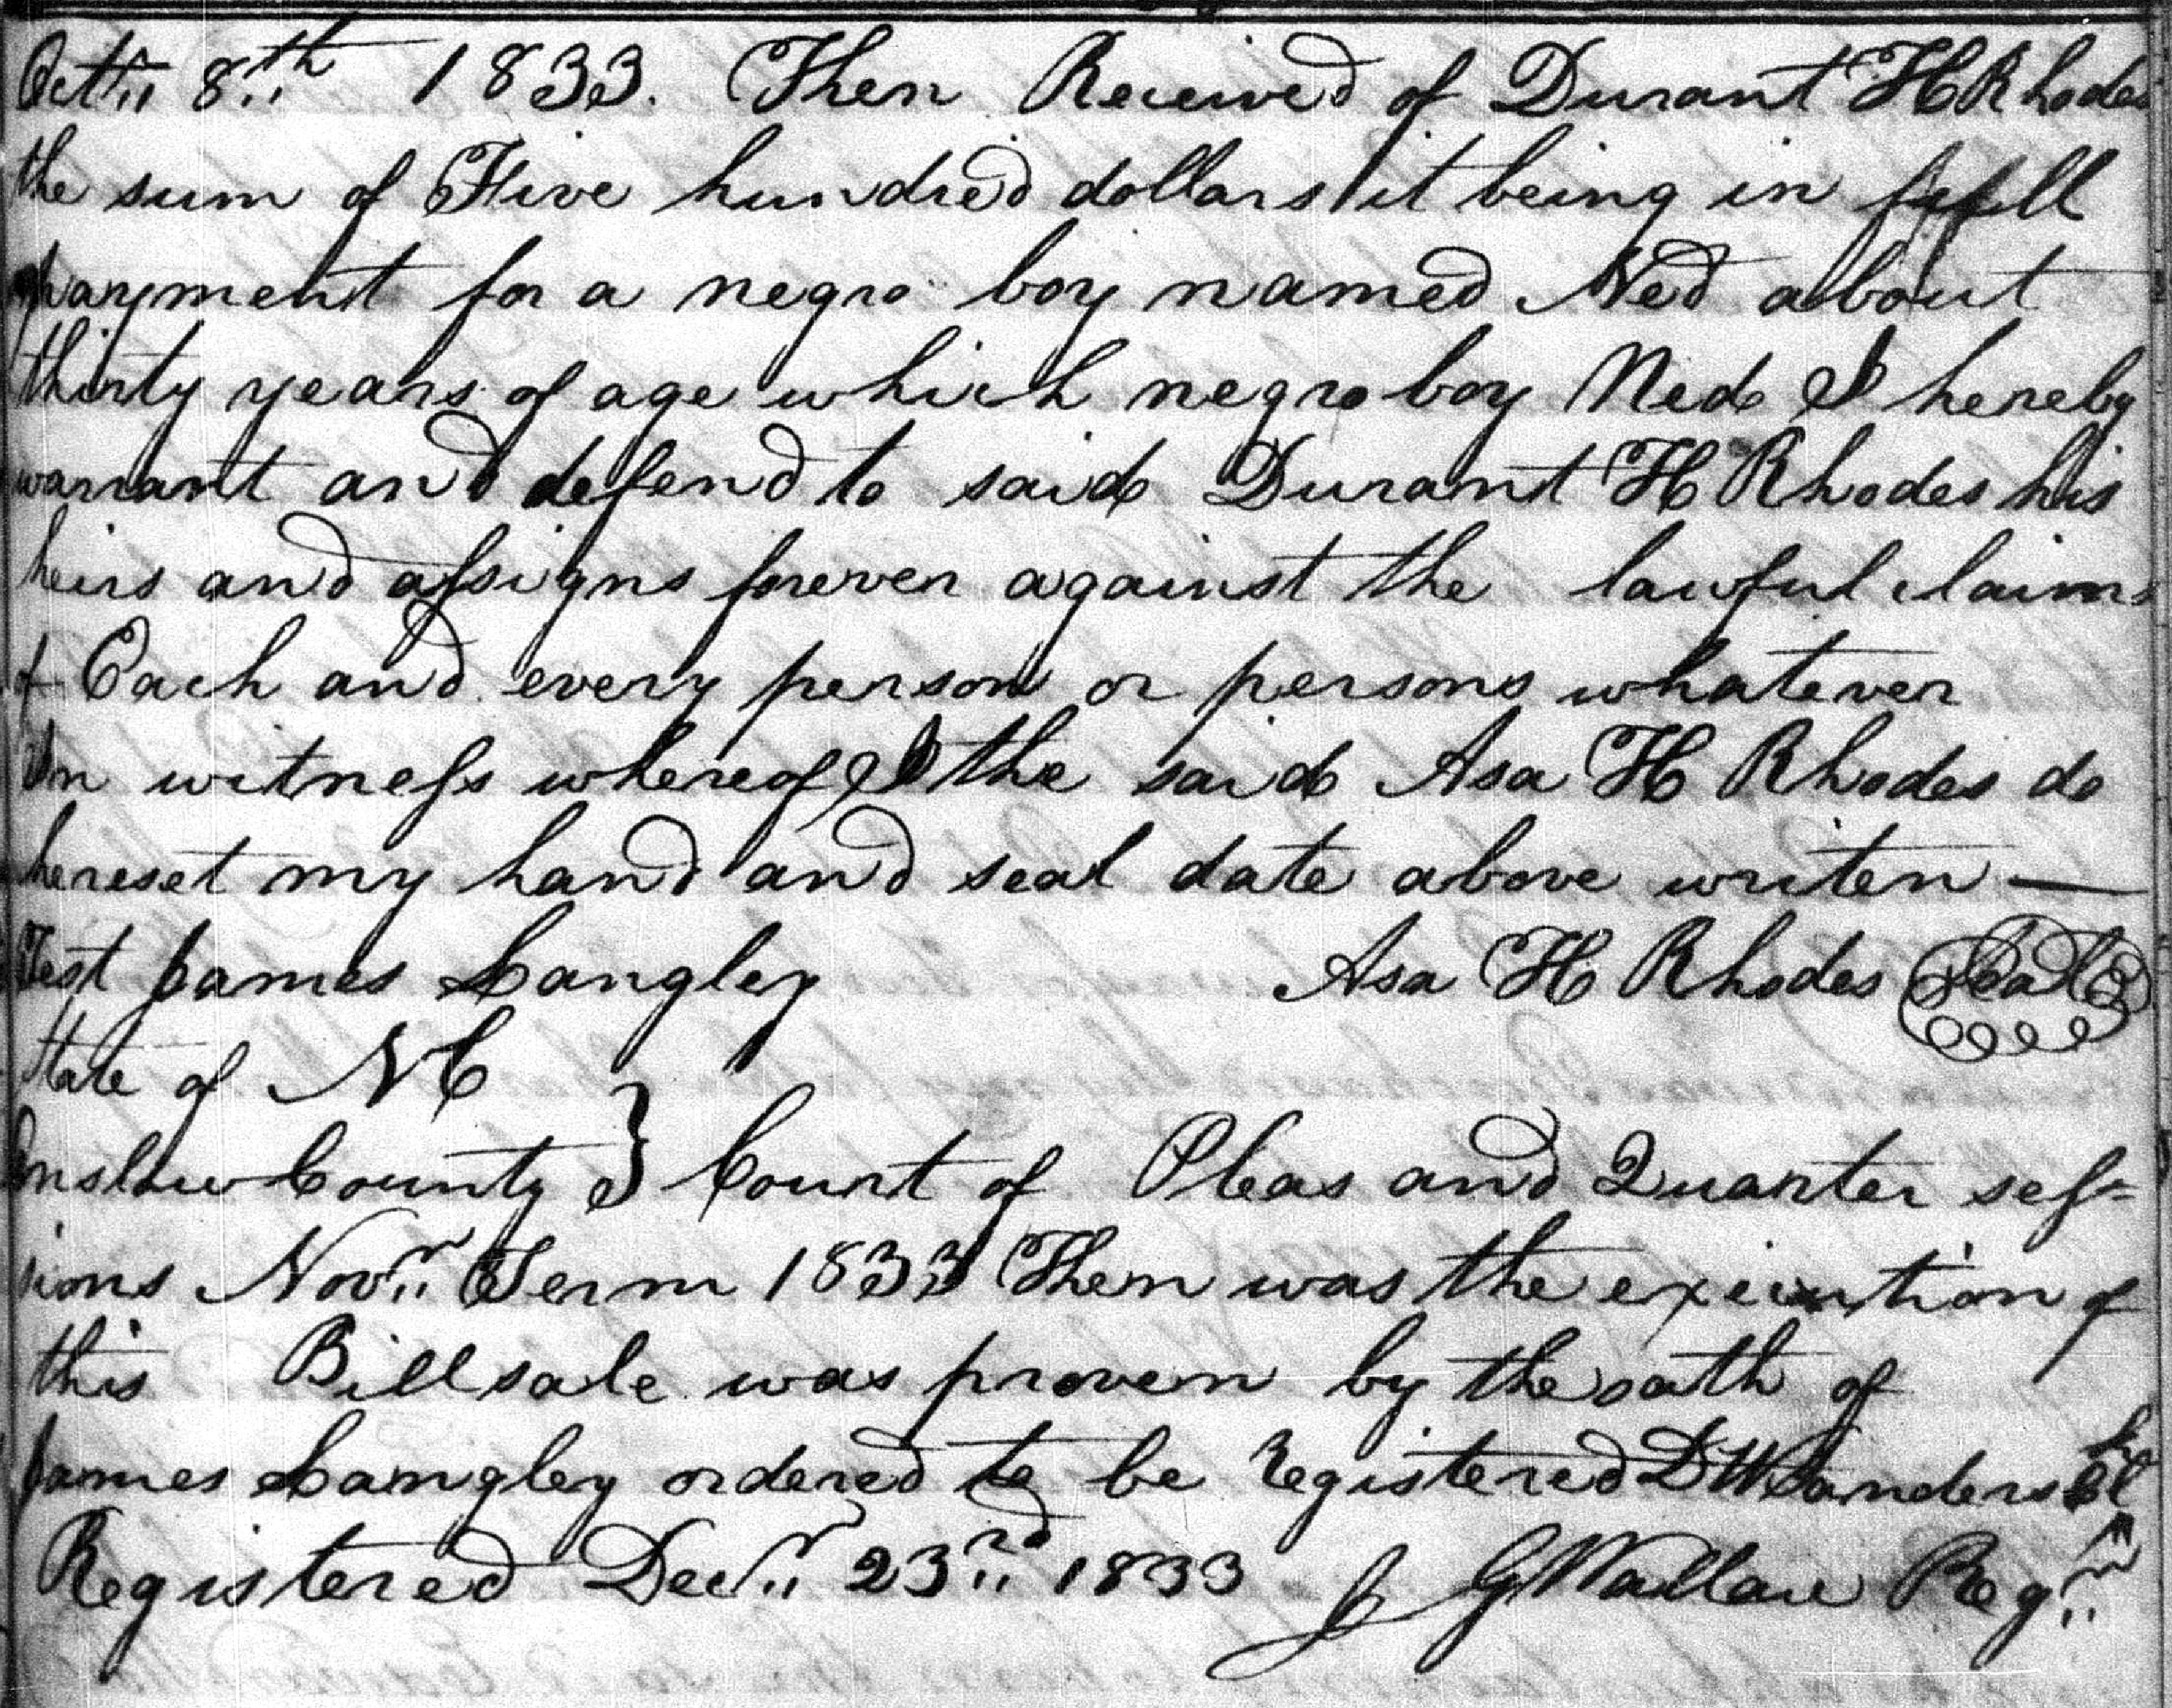 Oct,, 8,,th 1833. Then Received of Durant H Rhodes
the sum of Five hundred dollars it being in full
payment for a negro boy named Ned about
thirty years of age which negro boy Ned I hereby
warrant and defend to said Durant H Rhodes his
heirs and assigns forever against the lawful claims
of Each and every person or persons whatever
In witness whereof I the said Asa H Rhodes do
hereset my hand and seal date above writen —
Test James Langley Asa H Rhodes Seal
State of NC
Onslow County } Court of Pleas and Quarter ses=
sions Nov,,r Term 1833 Then was the execution of
this Bill sale was proven by the oath of
James Langley ordered to be registered D W Sanders Cl
Registered Dec,,r 23,,rd 1833 J G Wallace Reg,,r